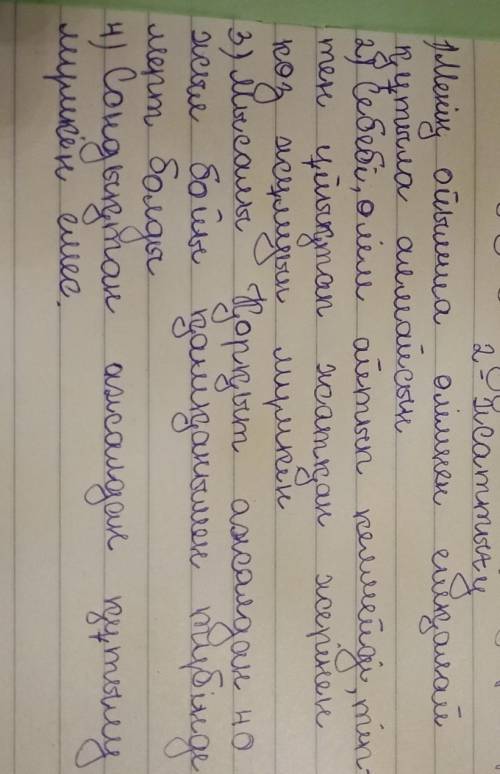 2-жаттығу
1) Менің ойымша өлімнен ешқалай
құтыла алмайсың
2) Себебі, өлім айтып келмейді, тіп-
тен ұйықтап жатқан жерінен
көз жұмуы мүмкін
3) Мысалы Қорқыт ажалдан 40
жыл бойы қашқанымен түбінде
мерт болды
4) Сондықтан ажалдан құтылу
мүмкін емес.